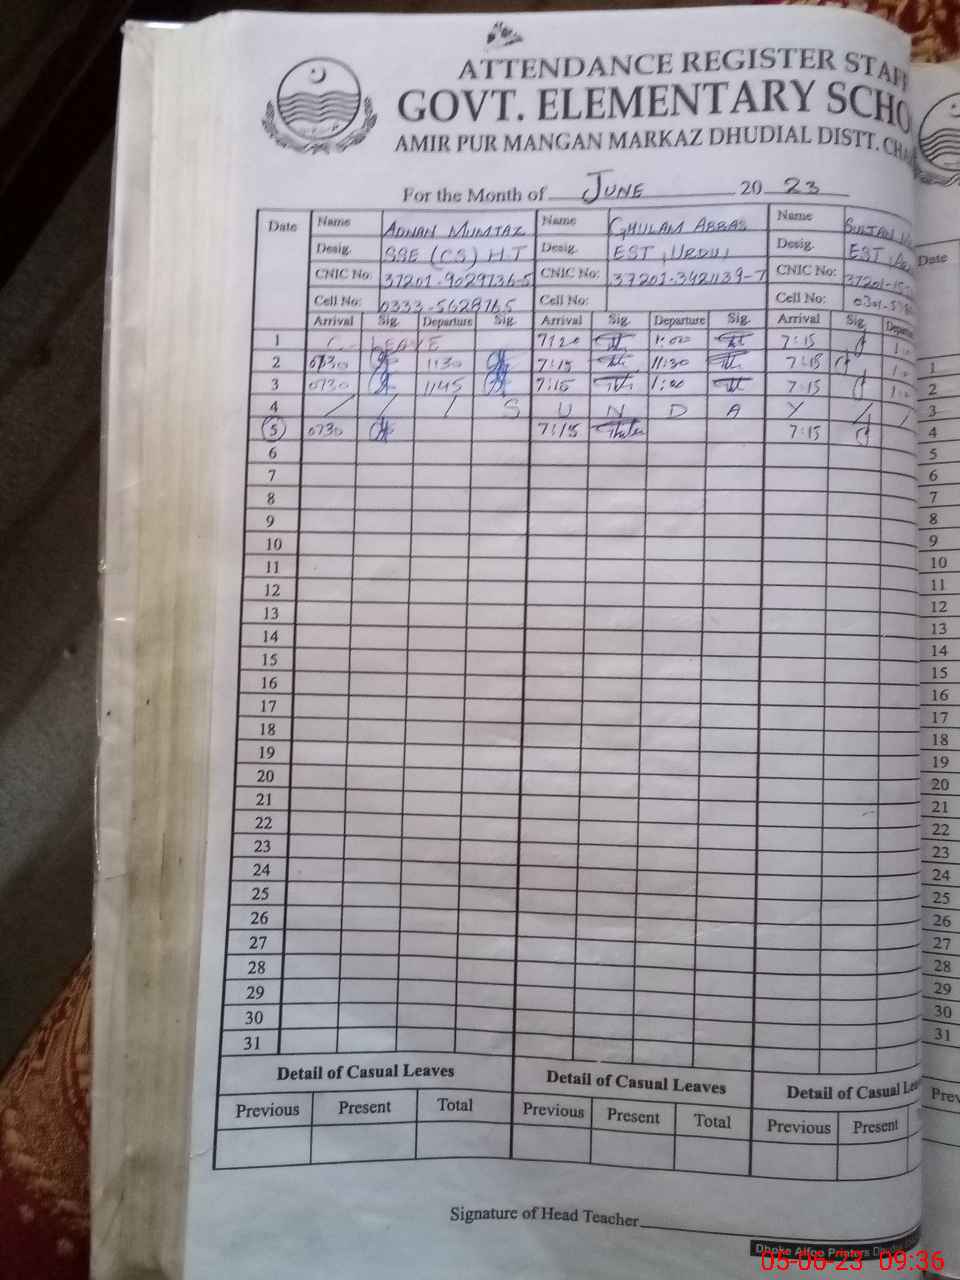 ATTENDANCE REGISTER STAFF
GOVT. ELEMENTARY SCHO
AMIR PUR MANGAN MARKAZ DHUDIAL DISTT. CHA
For the Month of JUNE 20 23
Date Name ADNAN MUMTAZ Name GHULAM ABBAS Name SULTAN
Desig. SSE (CS) H.T Desig. EST, URDU, Desig. EST,
CNIC No: 37201-9029736-5 CNIC No: 37201-3421139-7 CNIC No: 37201-15
Cell No: 0333-5628765 Cell No: Cell No: 0301-5
Arrival Sig. Departure Sig. Arrival Sig. Departure Sig. Arrival Sig. Departu
1 C. LEAVE 7:20 1:00 7:15
2 0730 1130 7:15 11:30 7:15
3 0730 1145 7:15 1:00 7:15
4 / / / S U N D A Y / /
5 0730 7:15 7:15
6
7
8
9
10
11
12
13
14
15
16
17
18
19
20
21
22
23
24
25
26
27
28
29
30
31
Detail of Casual Leaves Detail of Casual Leaves Detail of Casual Lea
Previous Present Total Previous Present Total Previous Present
Signature of Head Teacher
Date
1
2
3
4
5
6
7
8
9
10
11
12
13
14
15
16
17
18
19
20
21
22
23
24
25
26
27
28
29
30
31
Prev
Dhoke Alfoo Printers
05-06-23 09:36